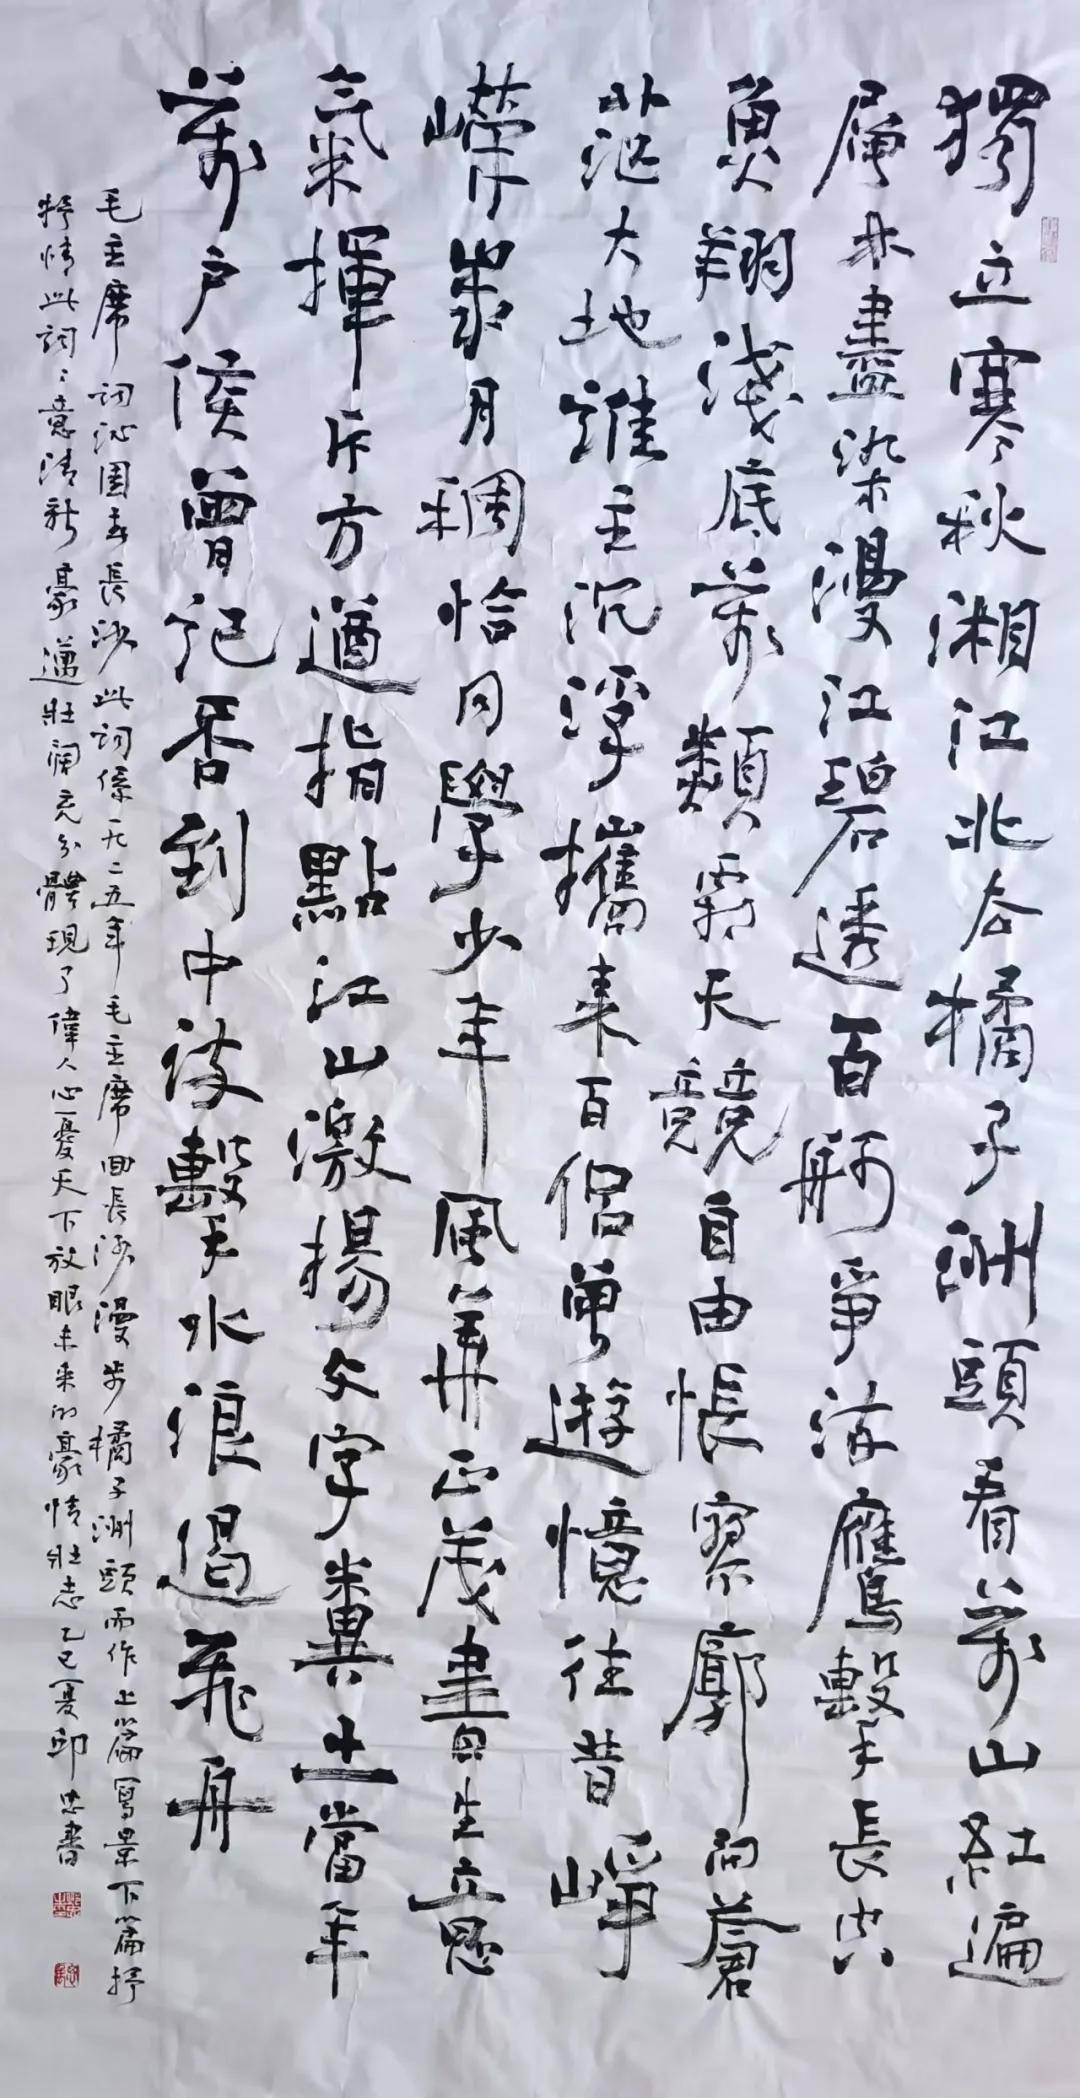 獨立寒秋湘江北去橘子洲頭看萬山紅遍
層林盡染漫江碧透百舸爭流鷹擊長空
魚翔淺底萬類霜天競自由悵寥廓問蒼
茫大地誰主沉浮攜来百侶曾遊憶往昔崢
嶸歲月稠恰同學少年風華正茂書生意
氣揮斥方遒指點江山激揚文字糞土當年
萬户侯曾記否到中流擊水浪遏飛舟
毛主席詞沁園春長沙此詞係一九二五年毛主席回長沙漫步橘子洲頭而作上篇寫景下篇抒
抒情此詞々意清新豪邁壯闊充分體現了偉人心憂天下放眼未来的豪情壯志乙巳夏邱忠書